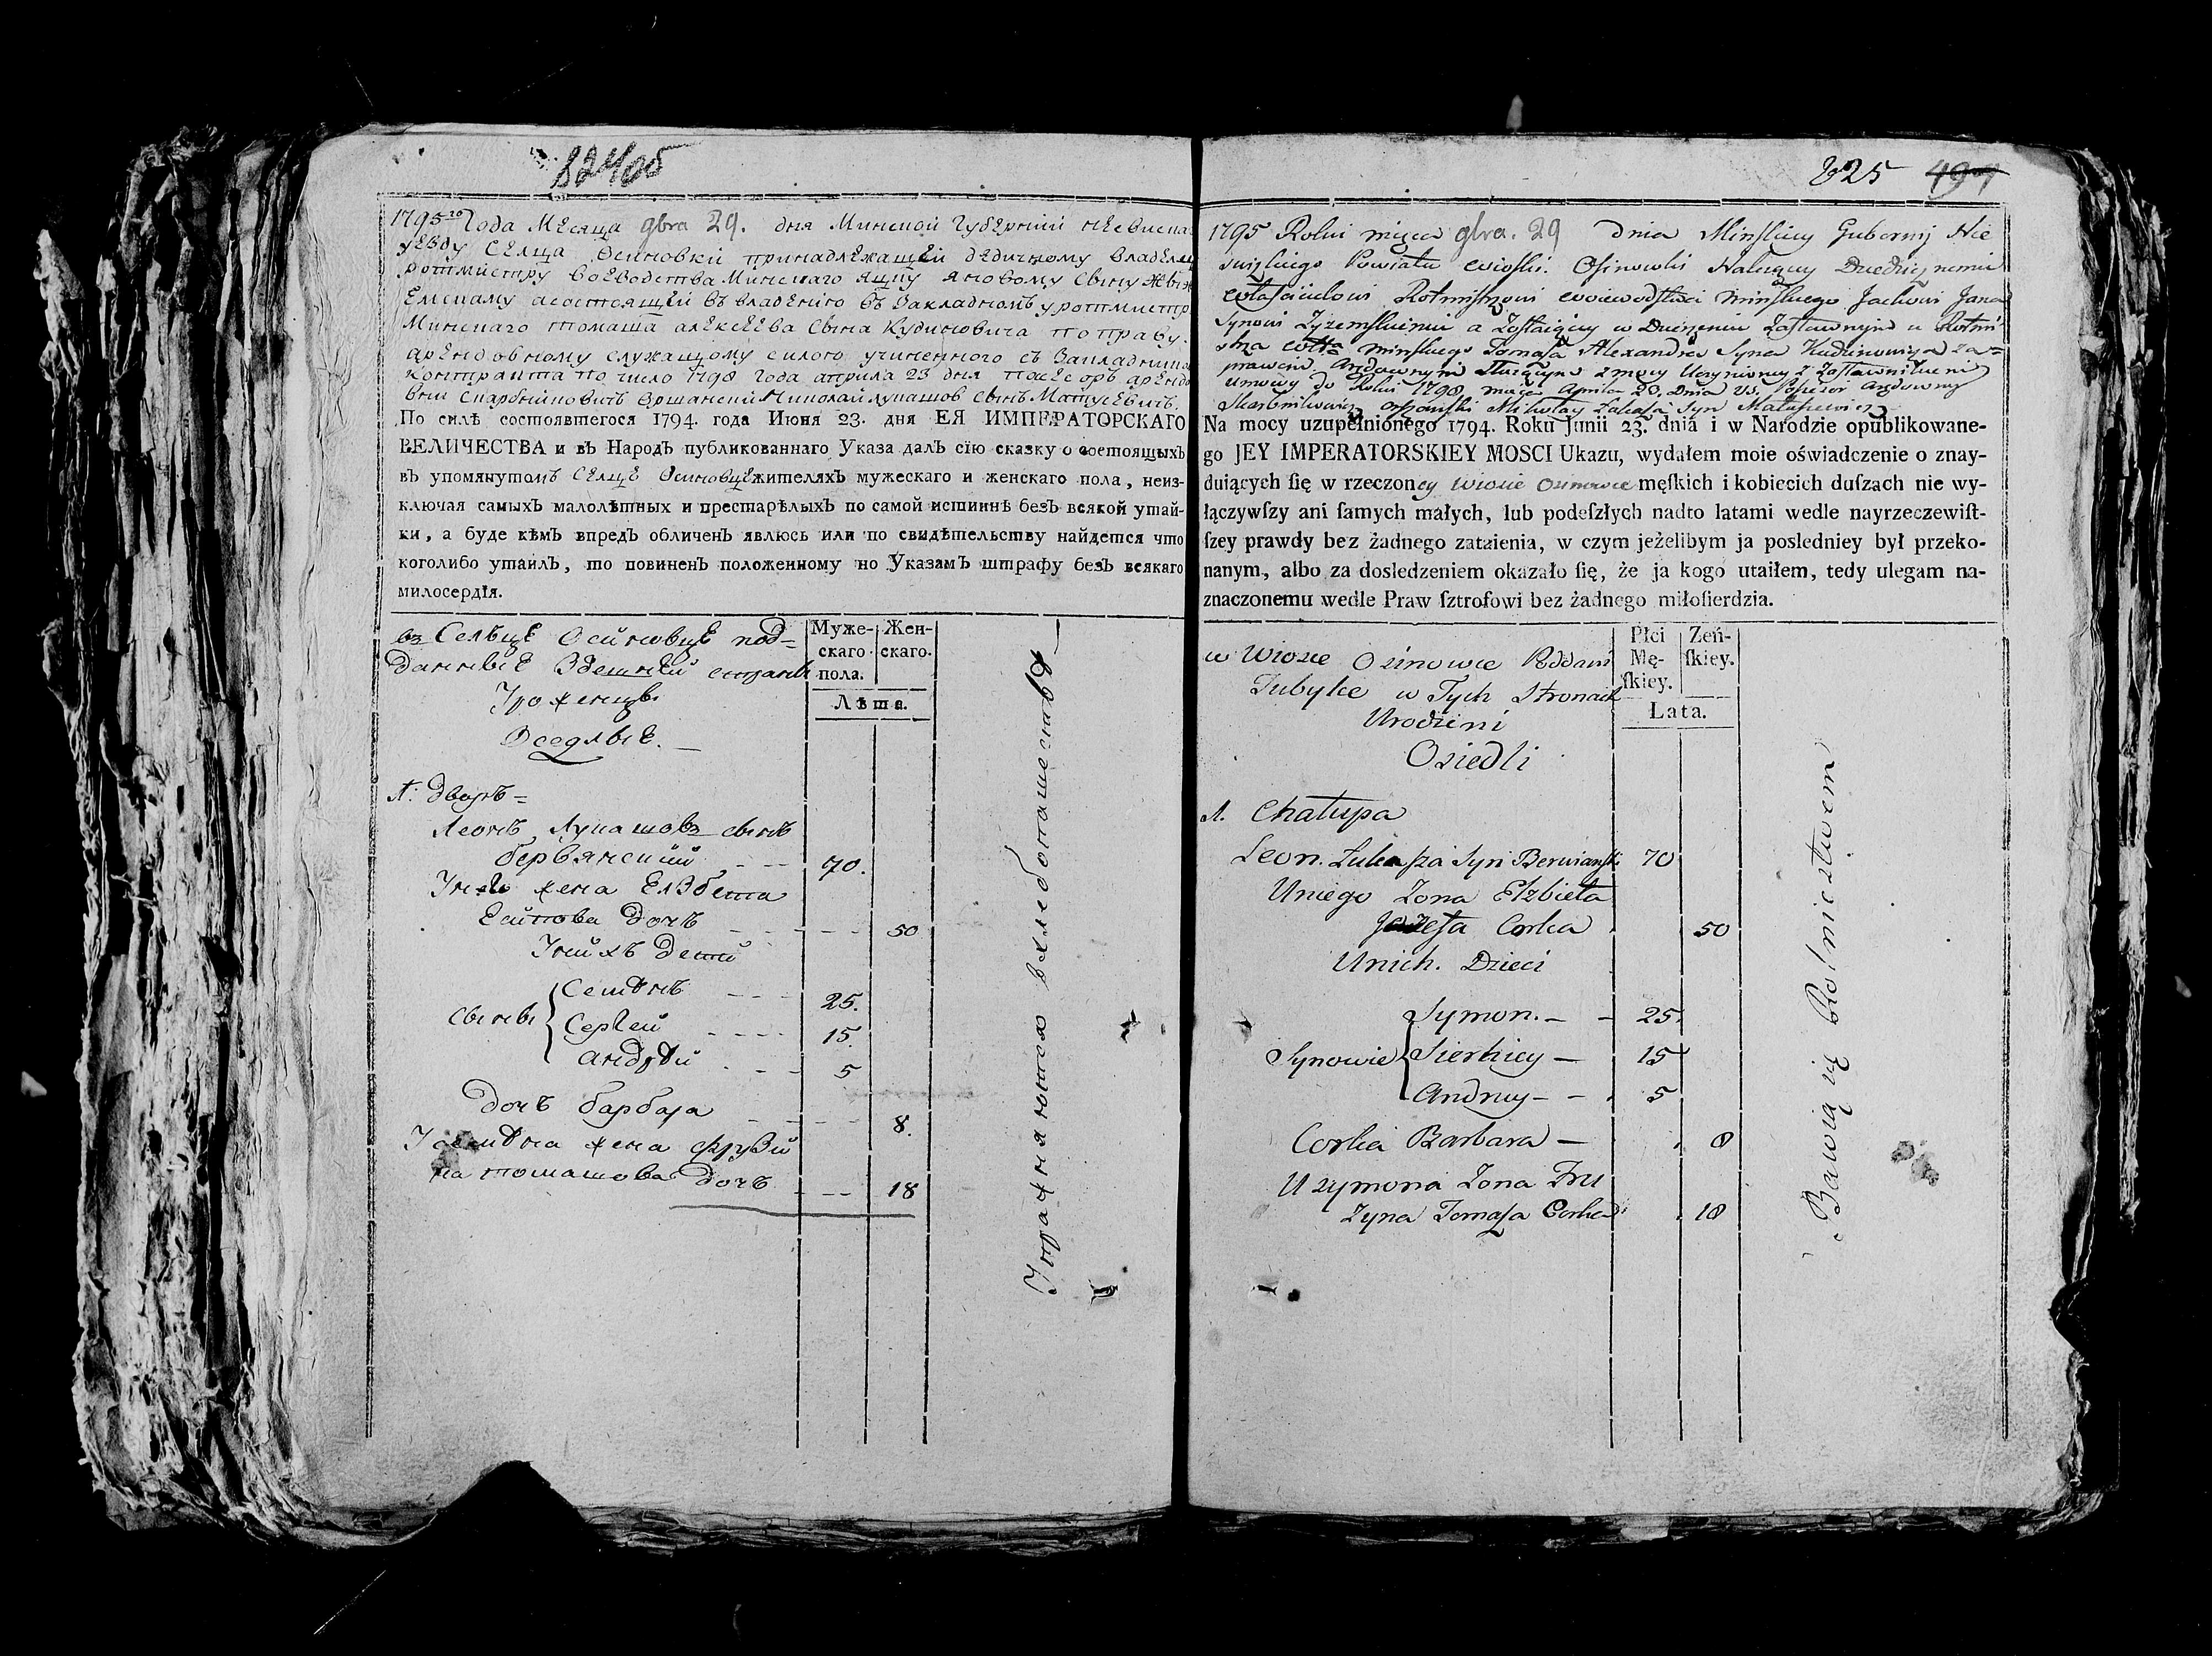 824об
1795го Года Месяца 9bra 29. дня Минской Губернїи Несвиска
уезду Селца Осиновки принадлежащей дедичному Владелцу
ротмистру Воеводства Минскаго Яцку Яновому Сыну
а состоящей въ владенїю въ Закладномъ у ротмистр
Минскаго томаша алексеева Сына Кудиновича по праву
арендовному служащому силою учиненного съ Закладнико
контракта по число 1798 года априла 23 дня посесоръ арендо
вни Скарбниковичъ Оршански Николай лукашов Сынъ Матусевичъ.
По силѣ состоявшегося 1794. года Июня 23. дня ЕЯ ИМПЕРАТОРСКАГО
ВЕЛИЧЕСТВА и въ Народъ публикованнаго Указа далъ сїю сказку о состоящыхъ
въ упомянутомъ Селце Осиновце жителяхъ мужескаго и женскаго пола, неиз-
ключая самыхъ малолѣтныхъ и престарѣлыхъ по самой истиннѣ безъ всякой утай-
ки, а буде кѣмъ впредъ обличенъ явлюсь или по свидѣтельству найдется что
коголибо утаилъ, то повиненъ положенному по Указамъ штрафу безъ всякаго
милосердїя.
въ Селце Осиновце под=
данные Здешней староны
Уроженцы
Оседлые.
Муже-
скаго
пола.
Жен-
скаго.
Лѣта.
1: Дворъ =
Леонъ Лукашовъ сынъ
бервянский 70.
У него жена Елзбета
Есипова дочъ 50
У нихъ Дети
Сыны
Семѣнъ 25.
Сергей 15.
андрей 5
Дочъ барбара 8.
У семѣна жена Фрузи
на томашова Дочъ 18
Упражняются в хлебопашествѣ
825 497
1795 Roku mięca 9bra. 29 dnia Minſkiey Gubernij Nie
swizkiego Powiatu wioſki. Osinowki Należącey Dziedzicznemu
właścicielowi Rotmiſtrzowi wojewodſtwa Minſkiego Jackowi Jana
Synowi Zyzemſkiemu a Zoſtaiącey w Dzierżeniu Zaſtawnym u Rotmi
ſtrza wttа Minſkiego Tomaſza Alexandra Syna Kudinowicza za=
prawem Arędownym Służącym z mocy Uczynioney z Zaſtawnikiem
umowy do Roku 1798 mięca Aprila 23. Dnia Posesor Arędowny
Skarbnikowicz Orszanſki Mikołay Łukaſza Syn Matuſewicz
Na mocy uzupełnionego 1794. Roku Junii 23. dnia i w Narodzie opublikowane-
go JEY IMPERATORSKIEY MOSCI Ukazu, wydałem moie oświadczenie o znay-
duiących ſię w rzeczoney Wiosce Osinowce męſkich i kobiecich duſzach nie wy-
łączywſzy ani ſamych małych, lub podeſzłych nadto latami wedle nayrzeczewiſt-
ſzey prawdy bez żadnego zataienia, w czym jeżelibym ja posledniey był przeko-
nanym, albo za dosledzeniem okazało ſię, że ja kogo utaiłem, tedy ulegam na-
znaczonemu wedle Praw ſztrofowi bez żadnego miłoſierdzia.
w Wiosce Osinowce Poddani
w Tych Stronach
Urodzeni
Osiedli
Płci
Mę-
ſkiey.
Zeń-
ſkiey.
Lata.
1. Chałupa
Leon. Łukaſza Syn Berwianſki 70
Uniego Żona Elżbieta
Jozefa Corka 50
Unich. Dzieci
Synowie
Symon. 25
Sierhiey 15
Andrzey 5
Corka Barbara 8
U Zymona Żona Fru
Zyna Tomaſza Corka 18
Bawią się Rolnictwem